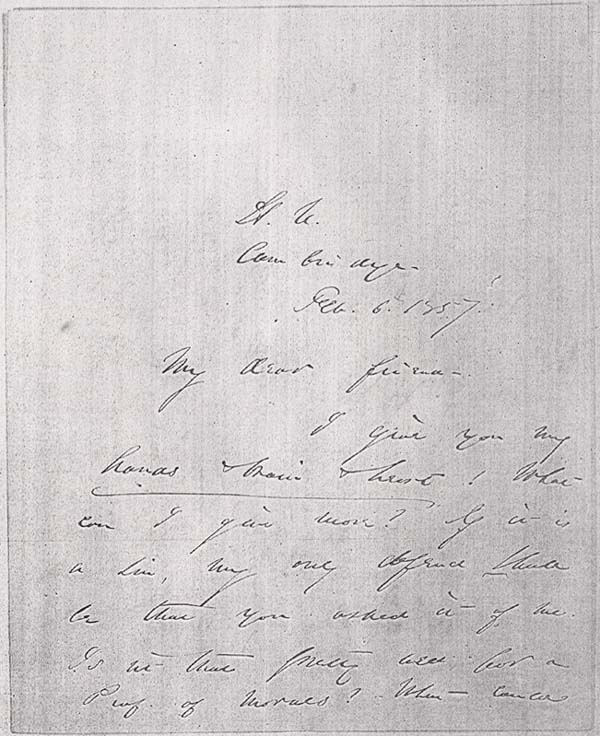 H. U.
Cambridge.
Feb. 6. 1857.
My dear friend.
I give you my
hands & brain & heart! What
can I give more? If it is
a sin, my only defence should
be that you asked it of me.
Is not that pretty well for a
Prof. of Morals? What could